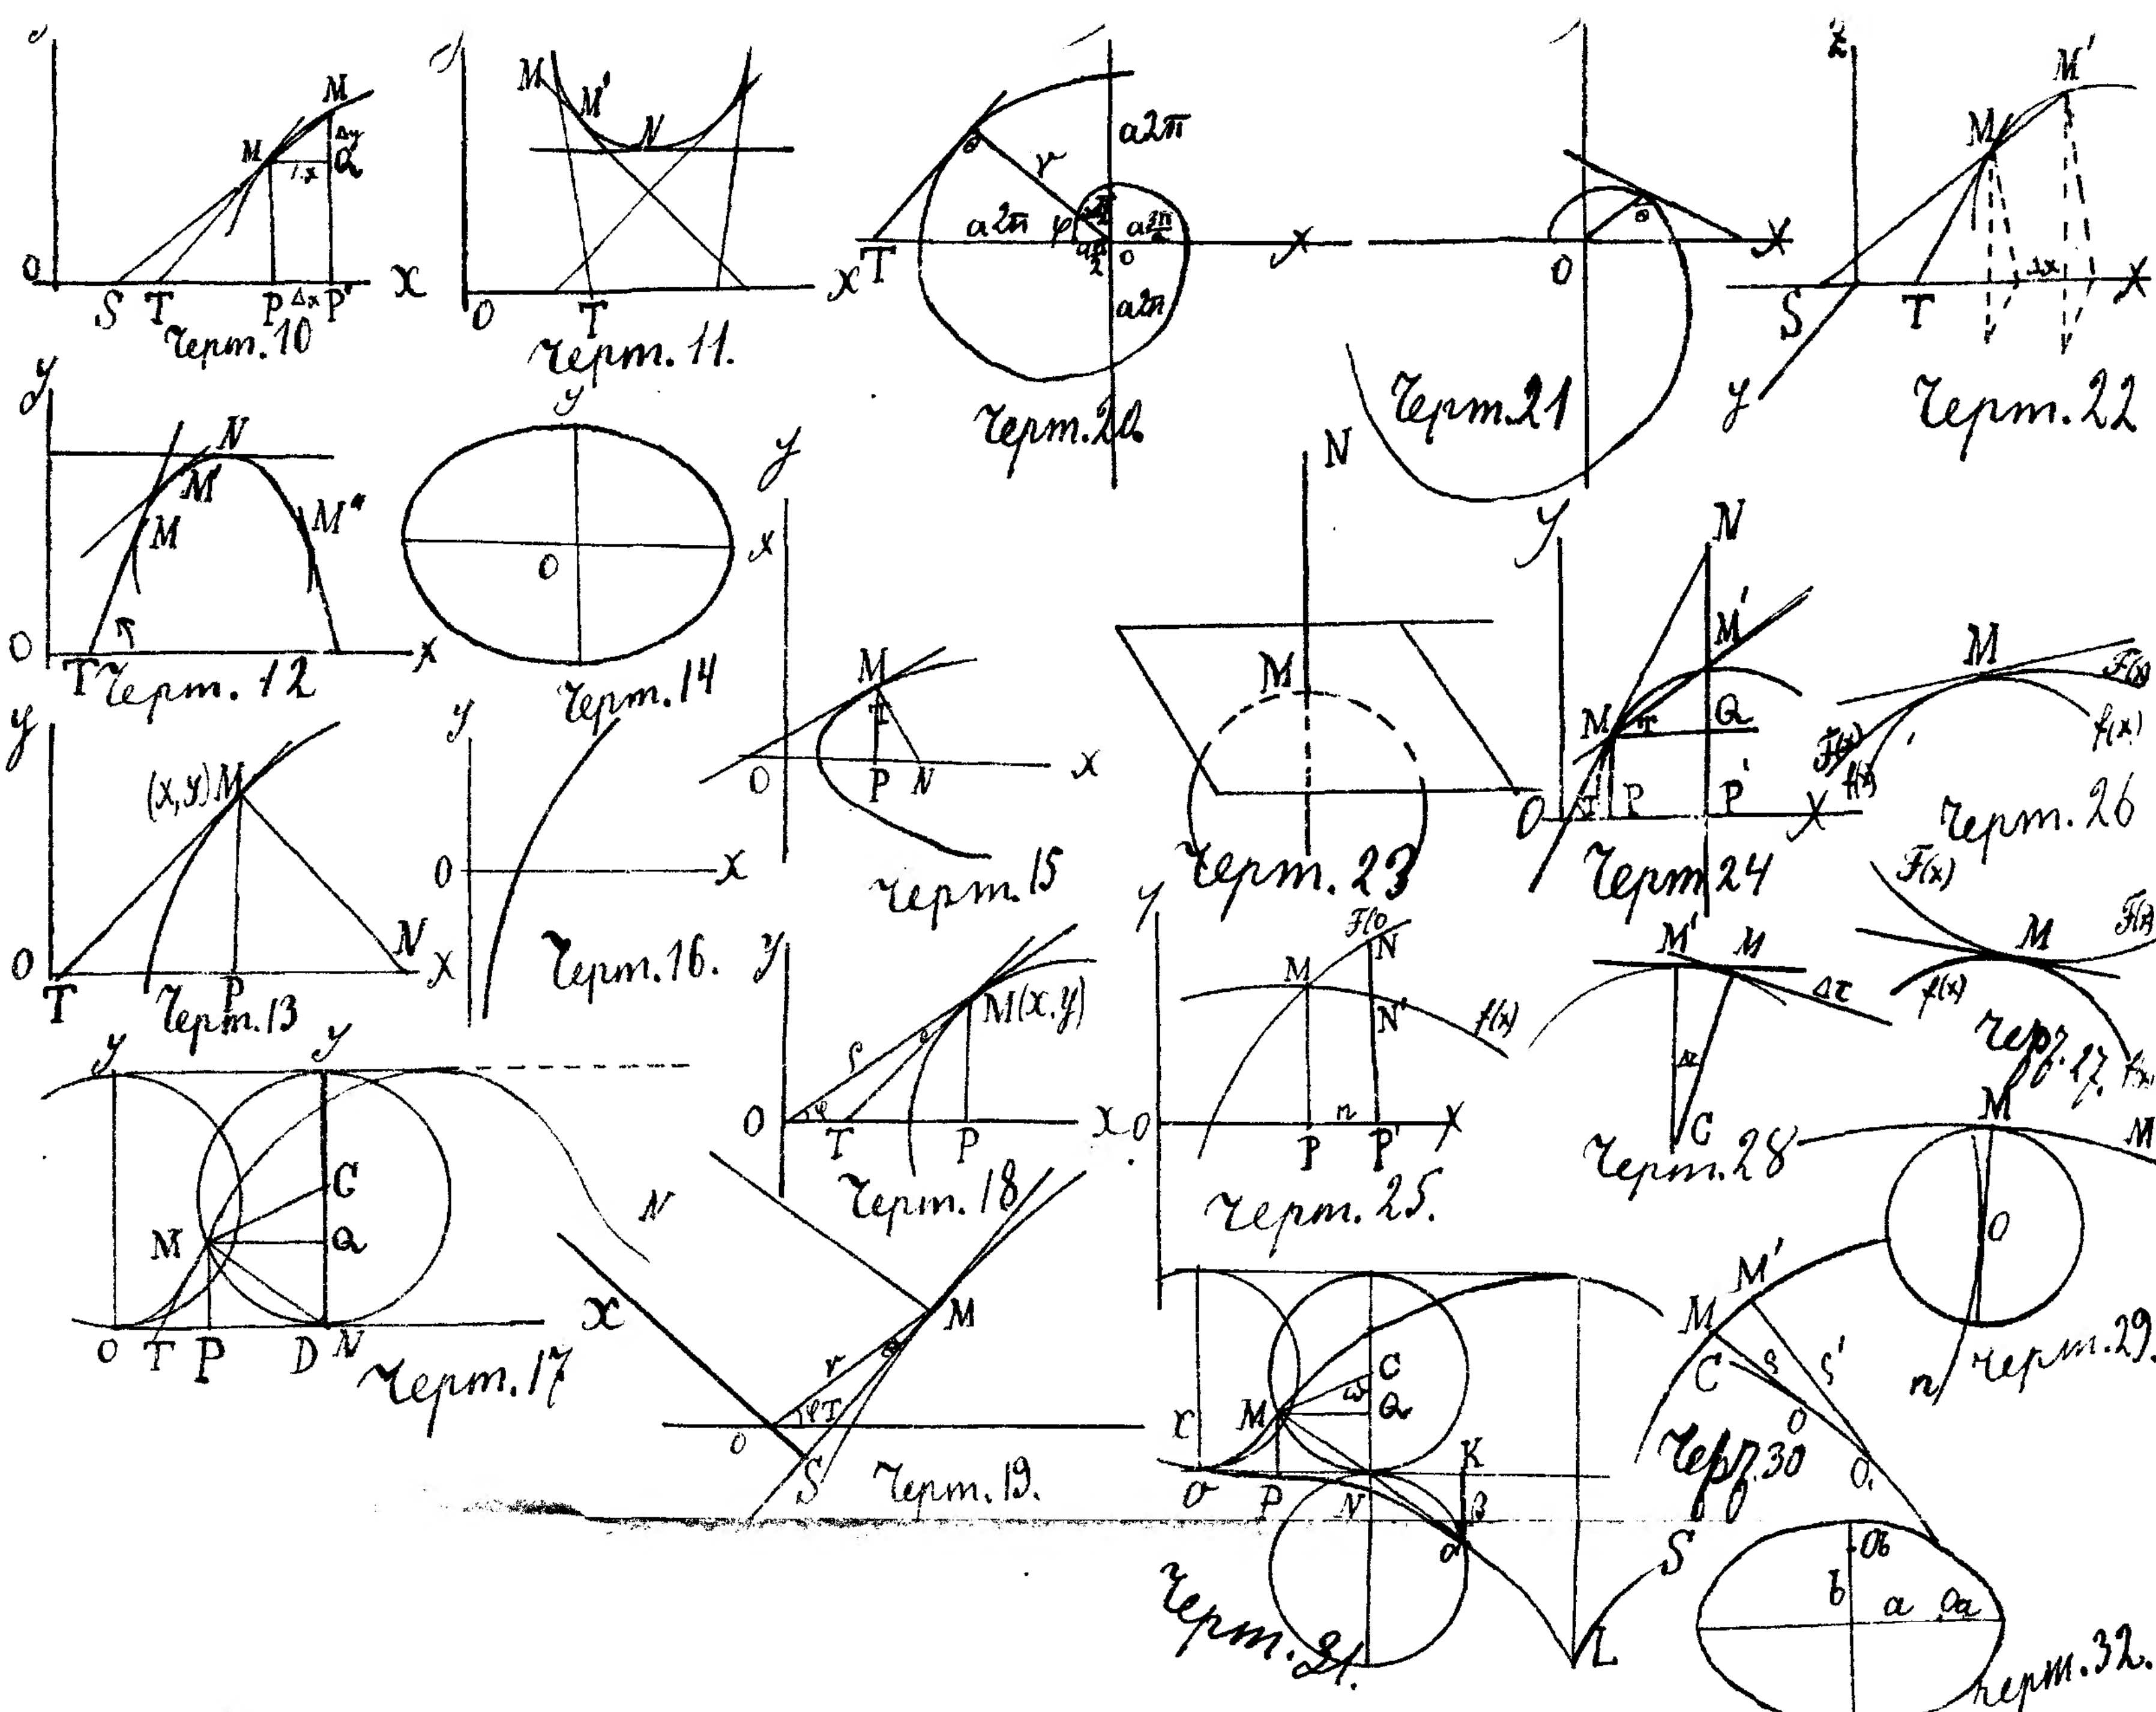 M
Δy
M
Q
O
S T P Δx P' X
Черт. 10
M
M'
N
O T X
Черт. 11.
a2π
r
a2π
φ
O
T
X
a2π
Черт. 20.
O
X
Черт. 21
Z
M'
M
S T X
y
Черт. 22
y
N
M'
M"
M
O T X
Черт. 12
y
O
X
Черт. 14
y
M
O P N X
Черт. 15
N
M
Черт. 23
y
N
M'
M
Q
O T P P' X
Черт. 24
M
F(x)
f(x)
F(x)
f(x)
Черт. 26
y
(x,y) M
N
O T P X
Черт. 13
y
O X
Черт. 16.
y
M(x.y)
φ
O T P X
Черт. 18
y
N
M
N'
f(x)
O P n P' X
Черт. 25.
M' M
Δτ
C
Черт. 28
F(x)
M
F(x)
f(x)
f(x)
Черт. 27.
y y
C
M Q
O T P D N
Черт. 17
N
X
M
r
φ T
O
S
Черт. 19.
M
M
O
n
Черт. 29.
C
ω
X M Q
K
O P N B
S
L
Черт. 31.
M'
M
C
O
O₁
Черт. 30
b
a
Oa
Ob
Черт. 32.